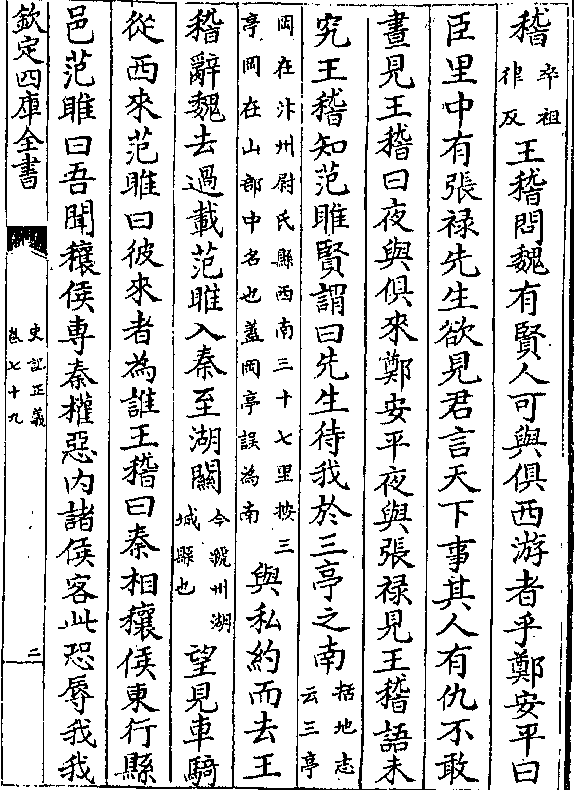 稽卒祖律反王稽問魏有賢人可與俱西游者乎鄭安平曰
臣里中有張祿先生欲見君言天下事其人有仇不敢
晝見王稽曰夜與俱來鄭安平夜與張祿見王稽語未
究王稽知范睢賢謂曰先生待我於三亭之南括地志云三亭
岡在汴州尉氏縣西南三十七里按三亭岡在山部中名也蓋岡亭誤為南與私約而去王
稽辭魏去過載范睢入秦至湖關今虢州湖城縣也望見車騎
從西來范睢曰彼來者為誰王稽曰秦相穰侯東行縣
邑范睢曰吾聞穰侯專秦權惡内諸侯客此恐辱我我
欽定四庫全書
史記正義
卷七十九
二